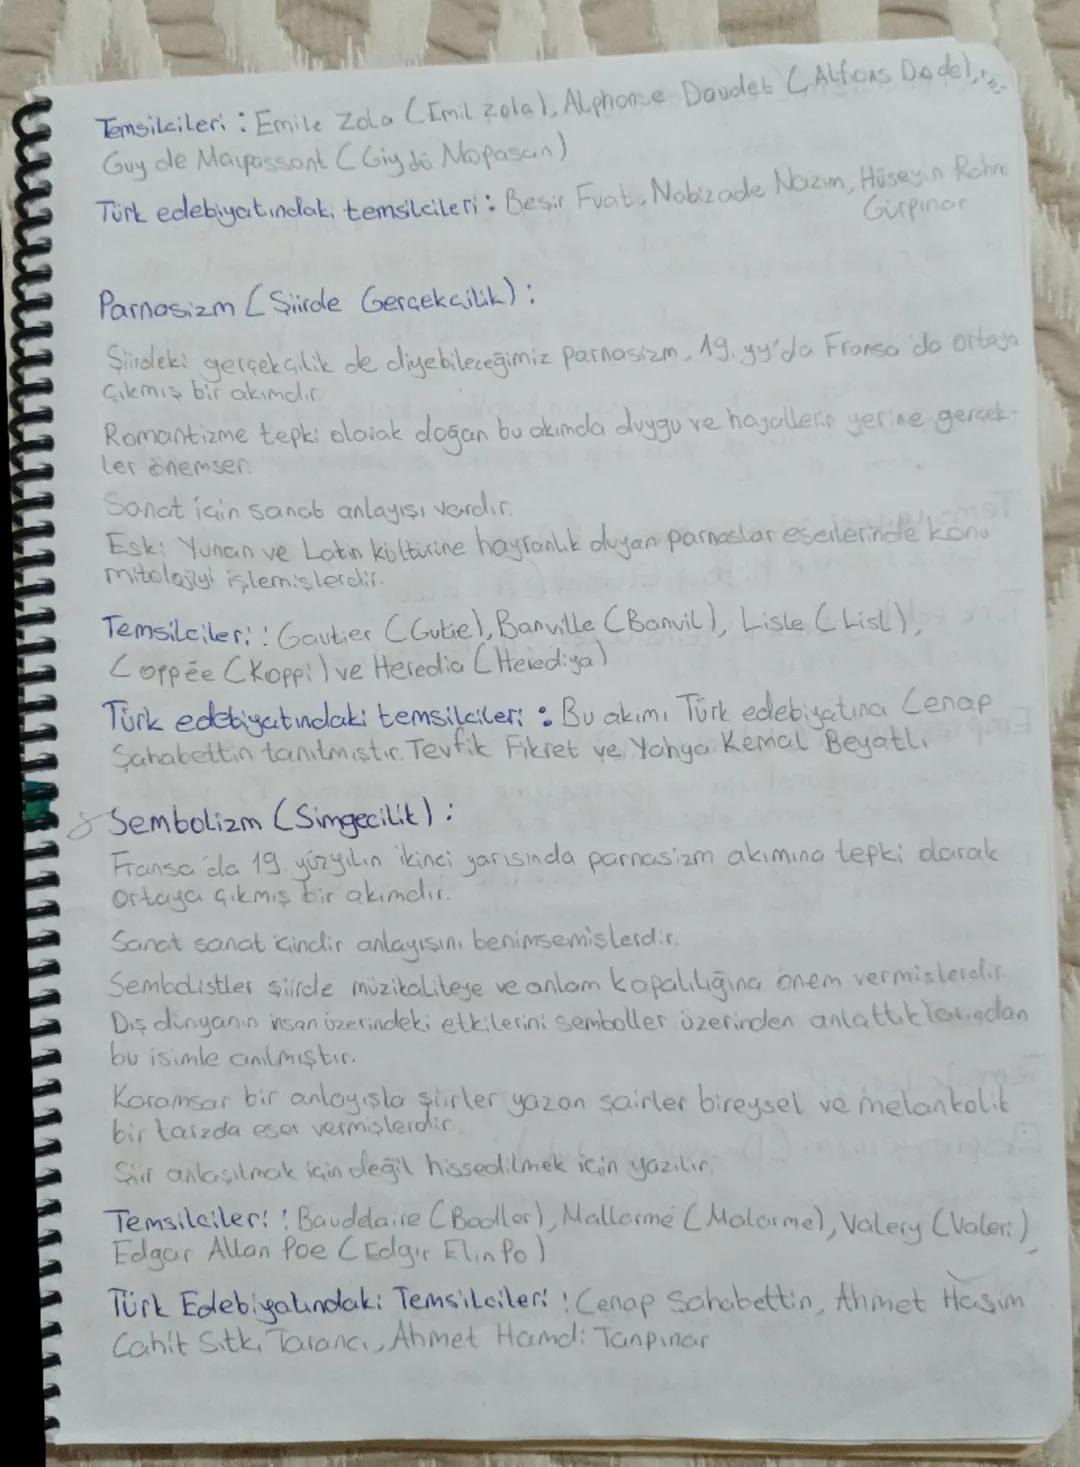 Temsilcileri : Emile Zola (Emil Zola), Alphonse Daudet (Alfons Dode),
Guy de Maupassant (Giy dö Mopasan)
Türk edebiyatındaki temsilcileri : Beşir Fuat, Nabizade Nazım, Hüseyin Rahmi
Gürpınar
Parnasizm (Şiirde Gerçekçilik) :
Şiirdeki gerçekçilik de diyebileceğimiz parnasizm, 19. yy'da Fransa'da ortaya
çıkmış bir akımdır
Romantizme tepki olarak doğan bu akımda duygu ve hayallerin yerine gerçek-
ler önemser.
Sanat için sanat anlayışı vardır.
Eski Yunan ve Latin kültürüne hayranlık duyan parnaslar eserlerinde konu
mitolojiyi işlemişlerdir.
Temsilcileri : Gautier (Gutie), Banville (Banvil), Lisle (Lisl),
Coppée (Koppi) ve Heredia (Herediya)
Türk edebiyatındaki temsilcileri : Bu akımı Türk edebiyatına Cenap
Şahabettin tanıtmıştır. Tevfik Fikret ve Yahya Kemal Beyatlı
Sembolizm (Simgecilik) :
Fransa'da 19. yüzyılın ikinci yarısında parnasizm akımına tepki olarak
ortaya çıkmış bir akımdır.
Sanat sanat içindir anlayışını benimsemişlerdir.
Sembolistler şiirde müzikaliteye ve anlam kapalılığına önem vermişlerdir.
Dış dünyanın insan üzerindeki etkilerini semboller üzerinden anlattıklarından
bu isimle anılmıştır.
Karamsar bir anlayışla şiirler yazan şairler bireysel ve melankolik
bir tarzda eser vermişlerdir.
Şiir anlaşılmak için değil hissedilmek için yazılır.
Temsilcileri : Bauddaire (Bodler), Mallarmé (Malarme), Valery (Valeri),
Edgar Allan Poe (Edgır Elın Po)
Türk Edebiyatındaki Temsilcileri : Cenap Şahabettin, Ahmet Haşim
Cahit Sıtkı Tarancı, Ahmet Hamdi Tanpınar